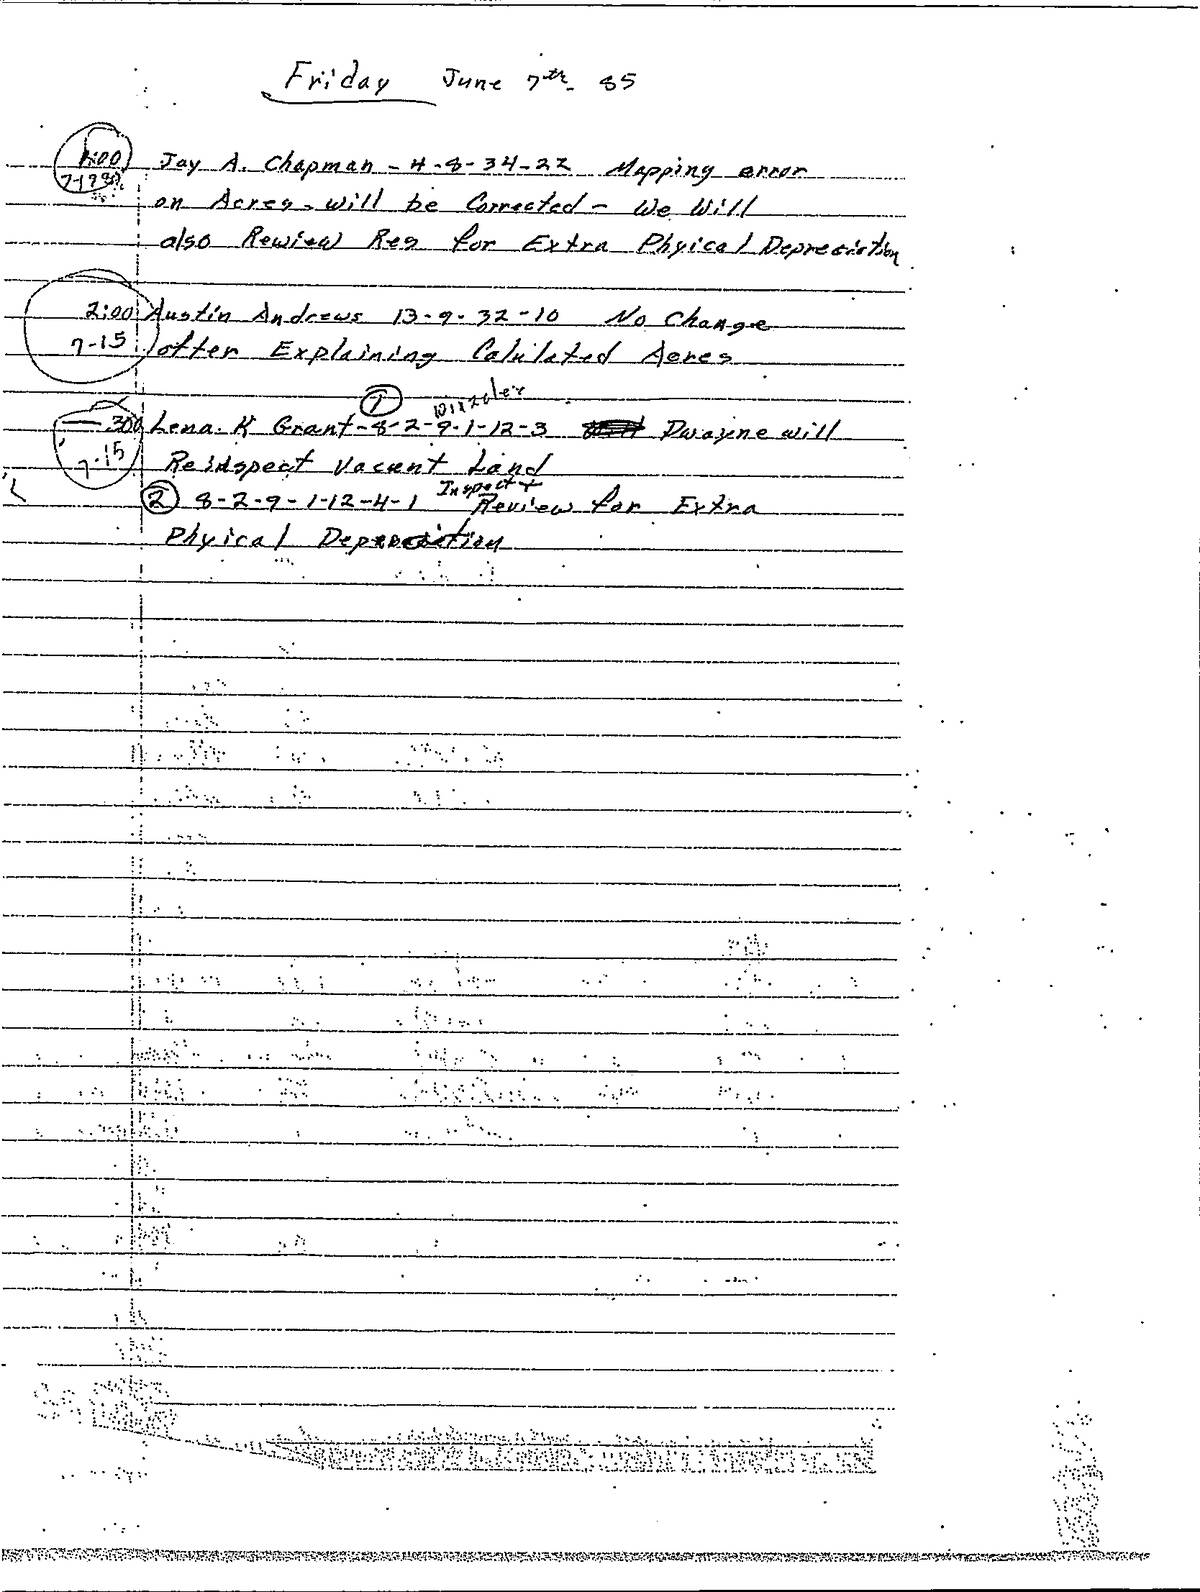 Friday June 7th 85
1:00 Jay A. Chapman - 4-8-34-22 Mapping error
on Acres - will be Corrected - We Will
also Rewiew Res for Extra Phyical Depreciation
2:00 Austin Andrews 13-9-32-10 No Change
7-15 after Explaining Calulated Acres
①
3:00 Lena. K Grant - 8-2-9-1-12-3 Dwayne will
7-15 Reinspect Vacant Land
② 8-2-9-1-12-4-1 Inspect + Review for Extra
Phyical Depreciation